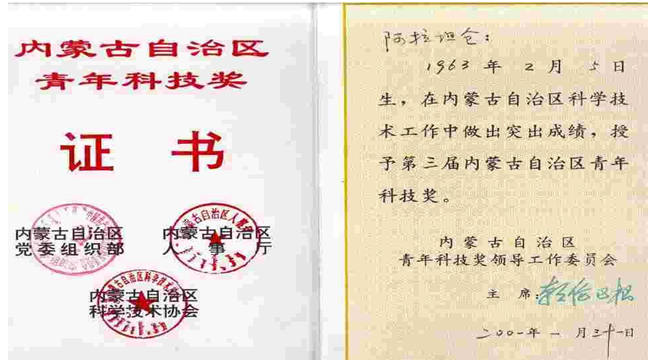 内蒙古自治区
青年科技奖
证书
内蒙古自治区
党委组织部
内蒙古自治区
人事厅
内蒙古自治区
科学技术协会
阿拉坦仓：
1963年2月5日
生，在内蒙古自治区科学技
术工作中做出突出成绩，授
予第三届内蒙古自治区青年
科技奖。
内蒙古自治区
青年科技奖领导工作委员会
主席：
二〇〇一年一月三十一日